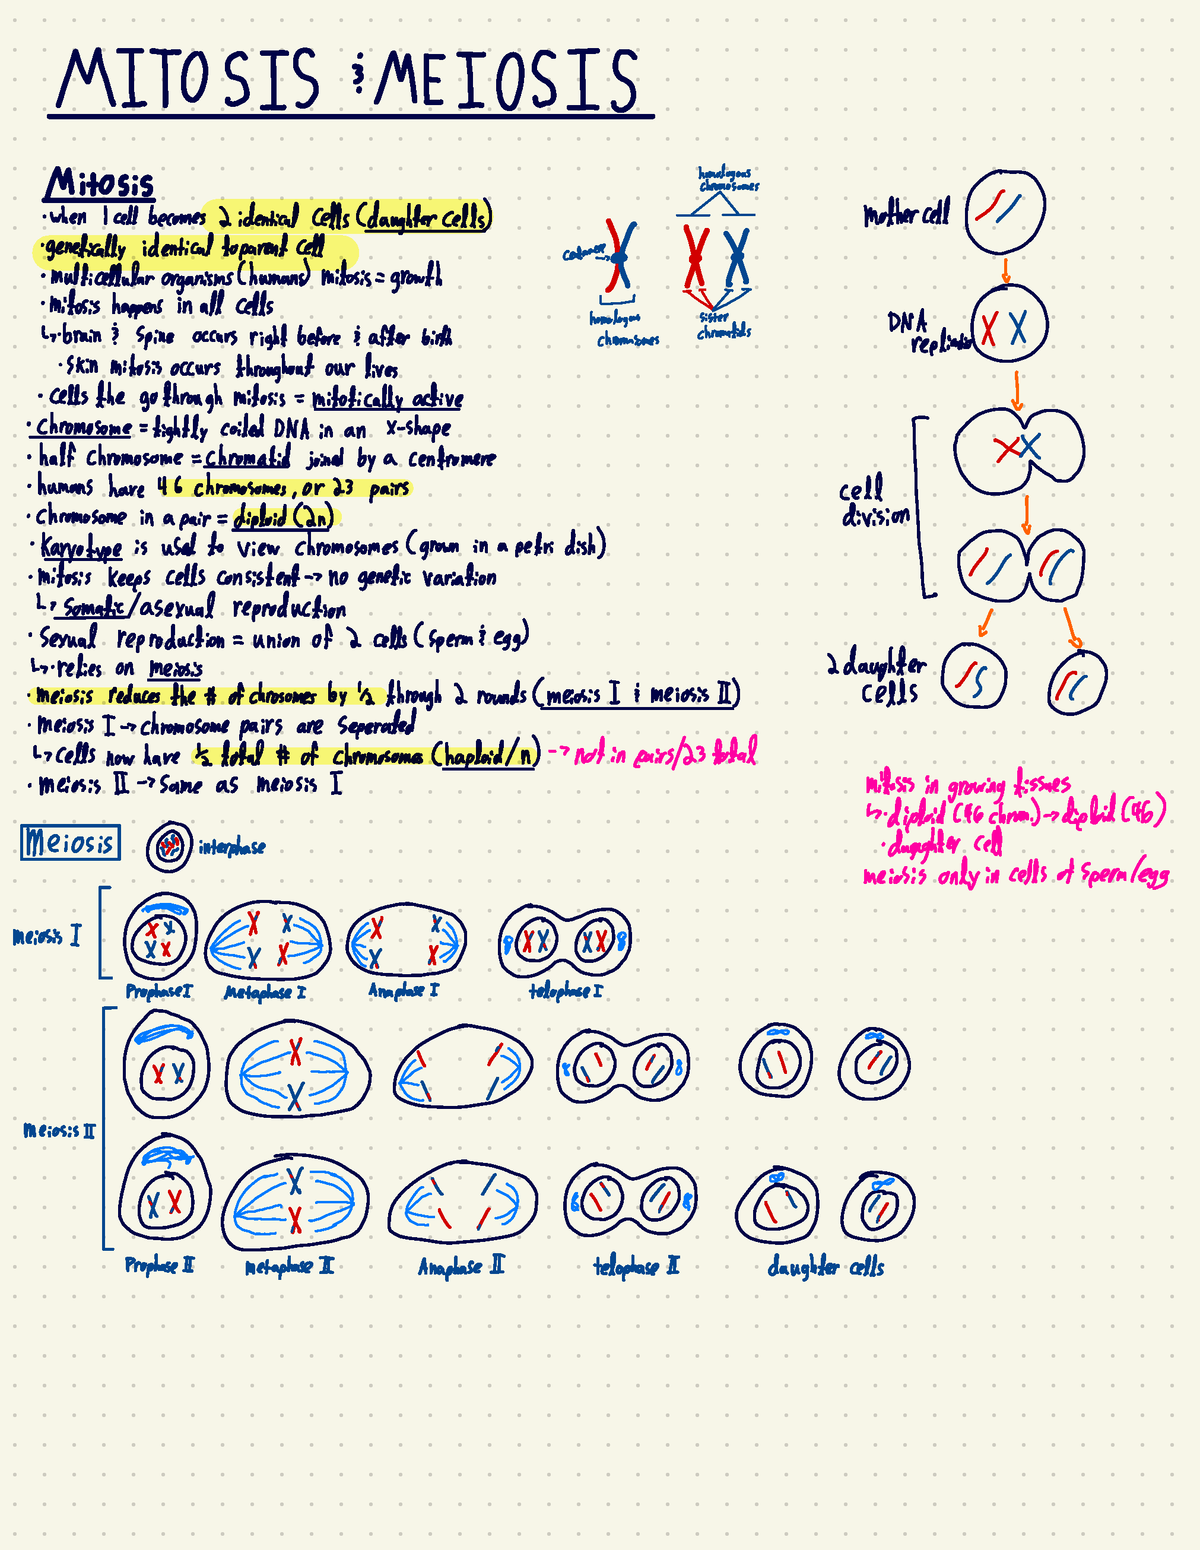 MITOSIS & MEIOSIS
Mitosis
· when 1 cell becomes 2 identical cells (daughter cells)
· genetically identical to parent cell
· multicellular organisms (humans) mitosis = growth
· mitosis happens in all cells
↳· brain & spine occurs right before & after birth
· skin mitosis occurs throughout our lives
· cells the go through mitosis = mitotically active
· Chromosome = tightly coiled DNA in an x-shape
· half chromosome = chromatid joined by a centromere
· humans have 46 chromosomes, or 23 pairs
· chromosome in a pair = diploid (2n)
· Karyotype is used to view chromosomes (grown in a petri dish)
· mitosis keeps cells consistent → no genetic variation
↳ somatic/asexual reproduction
· Sexual reproduction = union of 2 cells (sperm & egg)
↳· relies on meiosis
· meiosis reduces the # of chrosomes by ½ through 2 rounds (meiosis I & meiosis II)
· meiosis I → chromosome pairs are seperated
↳ cells now have ½ total # of chromosomes (haploid/n) → not in pairs/23 total
· meiosis II → same as meiosis I
homologous
chromosomes
homologous
sister
chromatids
mother cell
DNA
cell
division
2 daughter
cells
mitosis in growing tissues
↳· diploid (46 chrom.) → diploid (46)
cell
meiosis only in cells of sperm/egg
Meiosis
interphase
meiosis I
Prophase I
Metaphase I
Anaphase I
telophase I
meiosis II
Prophase II
metaphase II
Anaphase II
telophase II
daughter cells